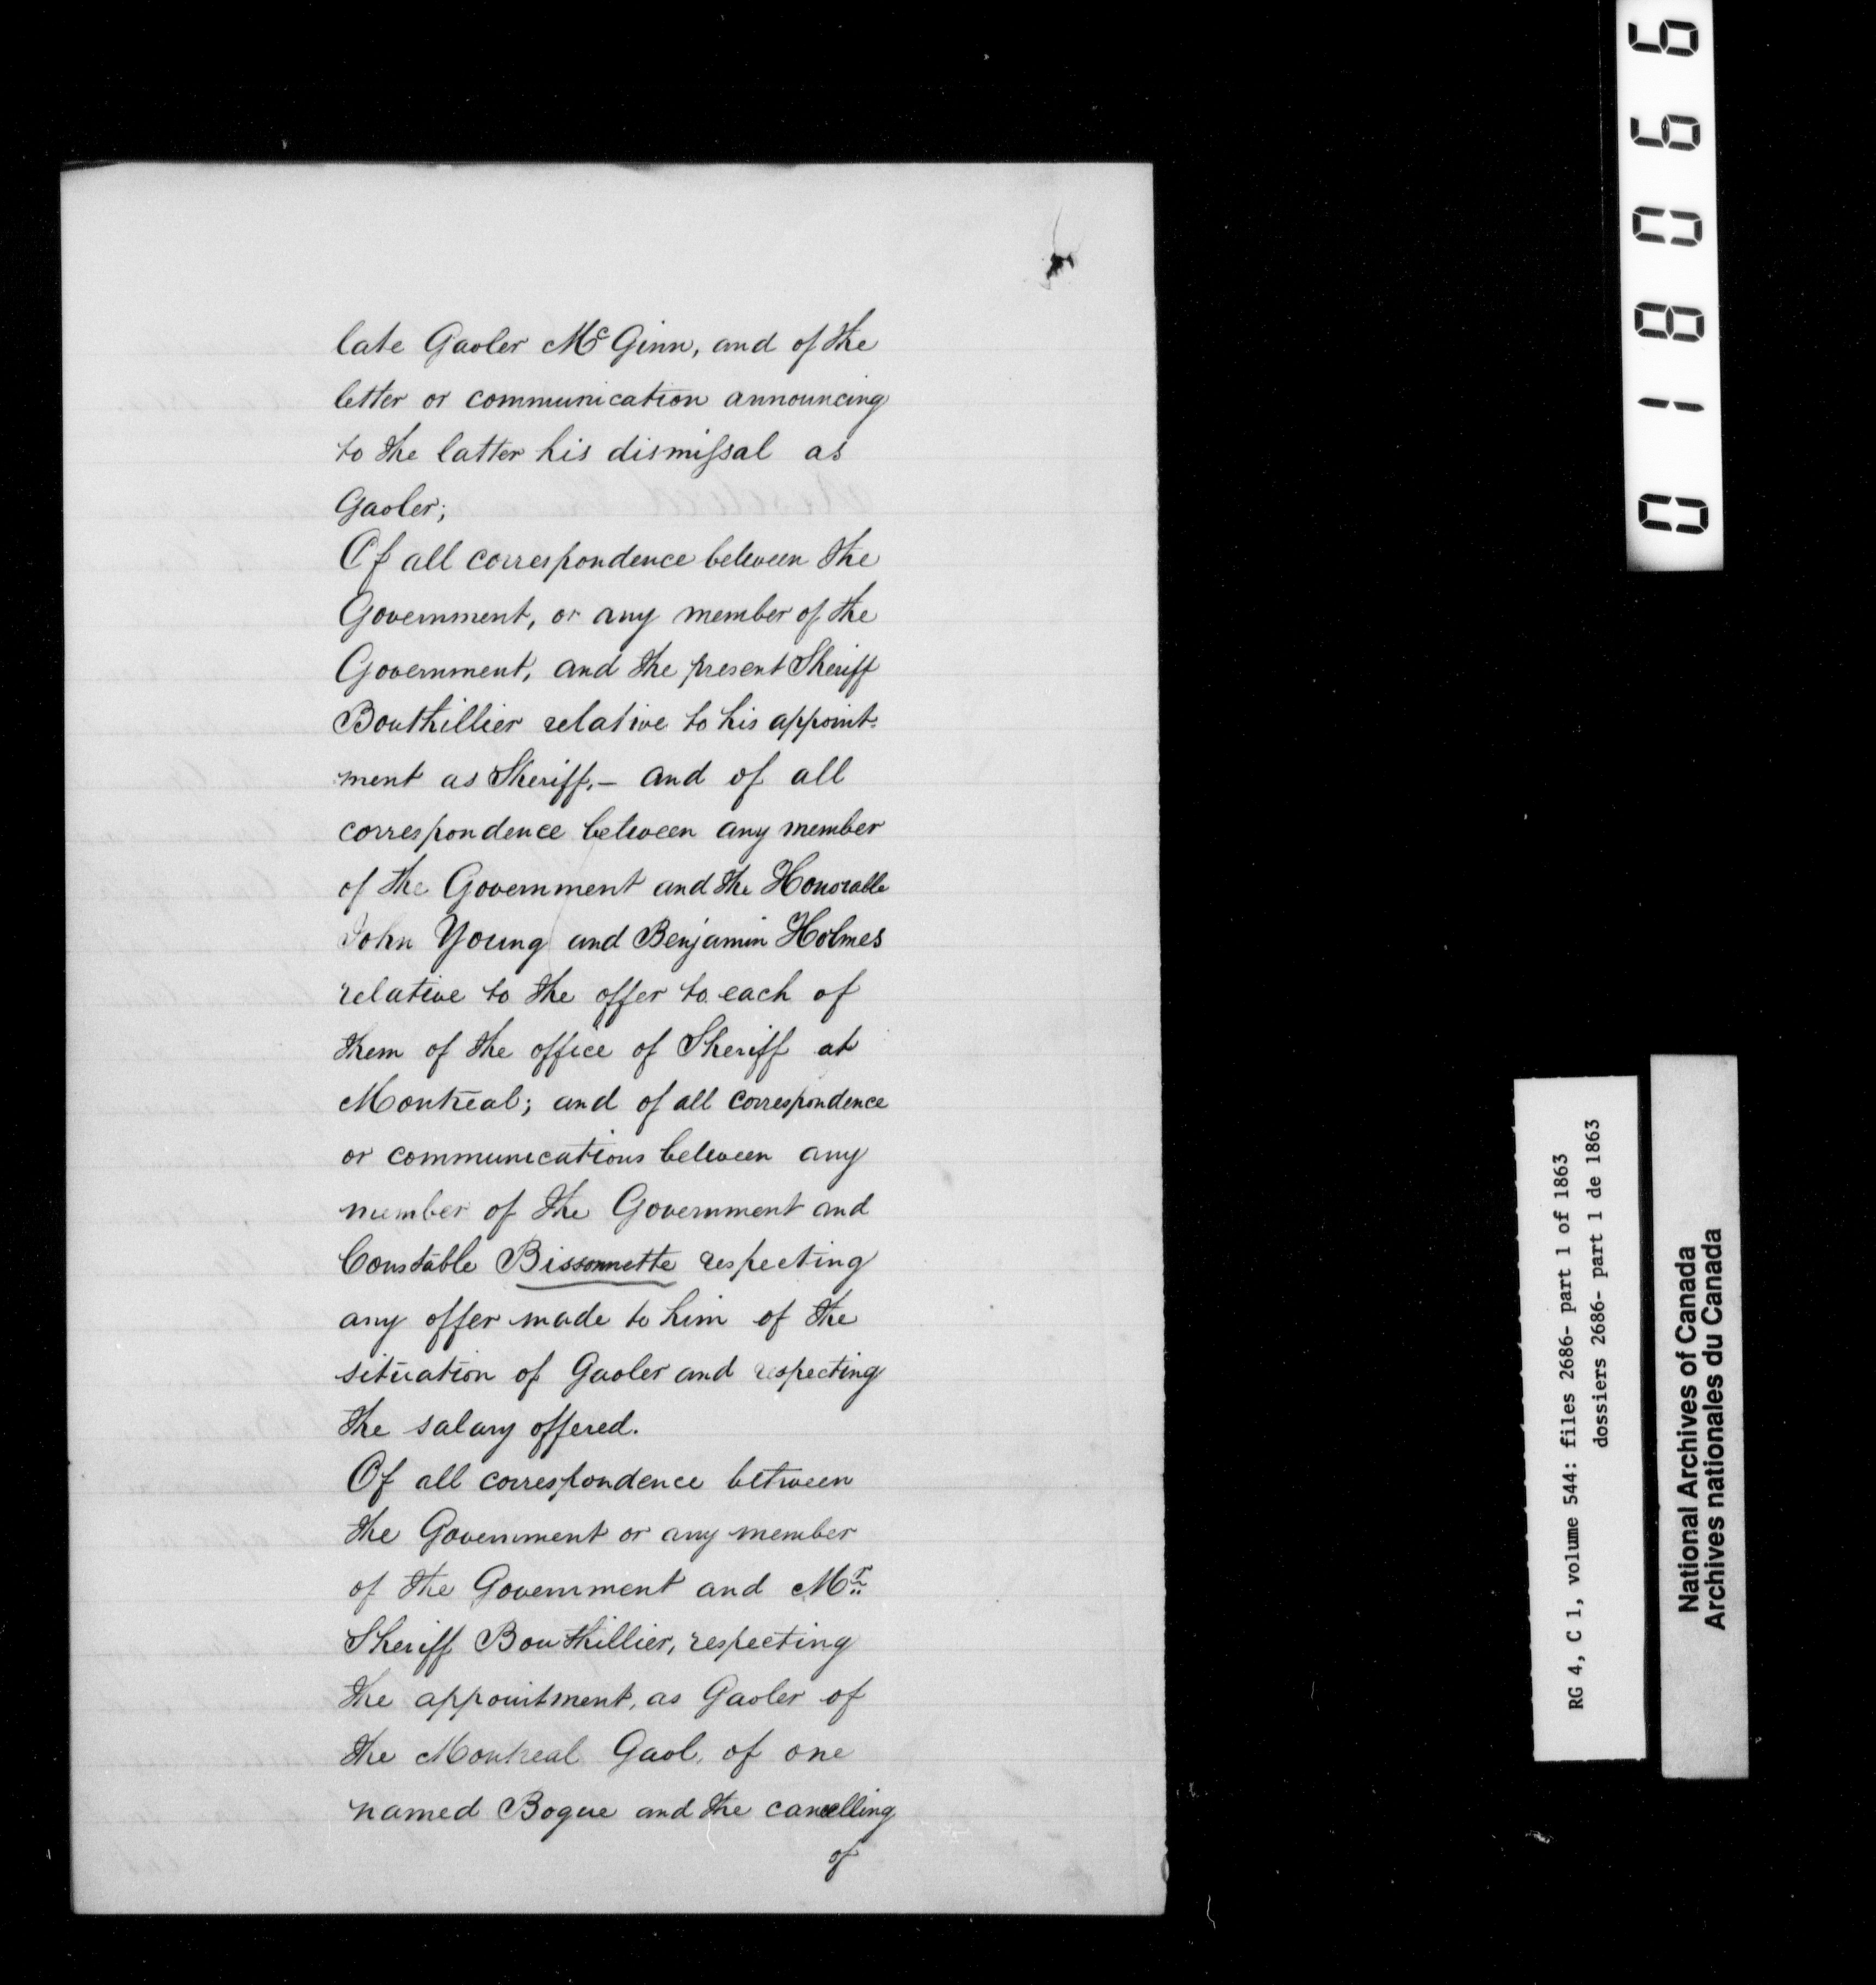 late Gaoler Mc Ginn, and of the
letter or communication announcing
to the latter his dismiſsal as
Gaoler;
Of all correspondence between the
Government, or any member of the
Government, and the present Sheriff
Bouthillier relative to his appoint-
ment as Sheriff,— and of all
correspondence between any member
of the Government and the Honorable
John Young and Benjamin Holmes
relative to the offer to each of
them of the office of Sheriff at
Montreal; and of all correspondence
or communications between any
member of the Government and
Constable Bissonnette respecting
any offer made to him of the
situation of Gaoler and respecting
the salary offered.
Of all correspondence between
the Government or any member
of the Government and Mr.
Sheriff Bouthillier, respecting
the appointment, as Gaoler of
the Montreal Gaol, of one
named Bogue and the cancelling
of
018066
RG 4, C 1, volume 544: files 2686- part 1 of 1863
dossiers 2686- part 1 de 1863
National Archives of Canada
Archives nationales du Canada